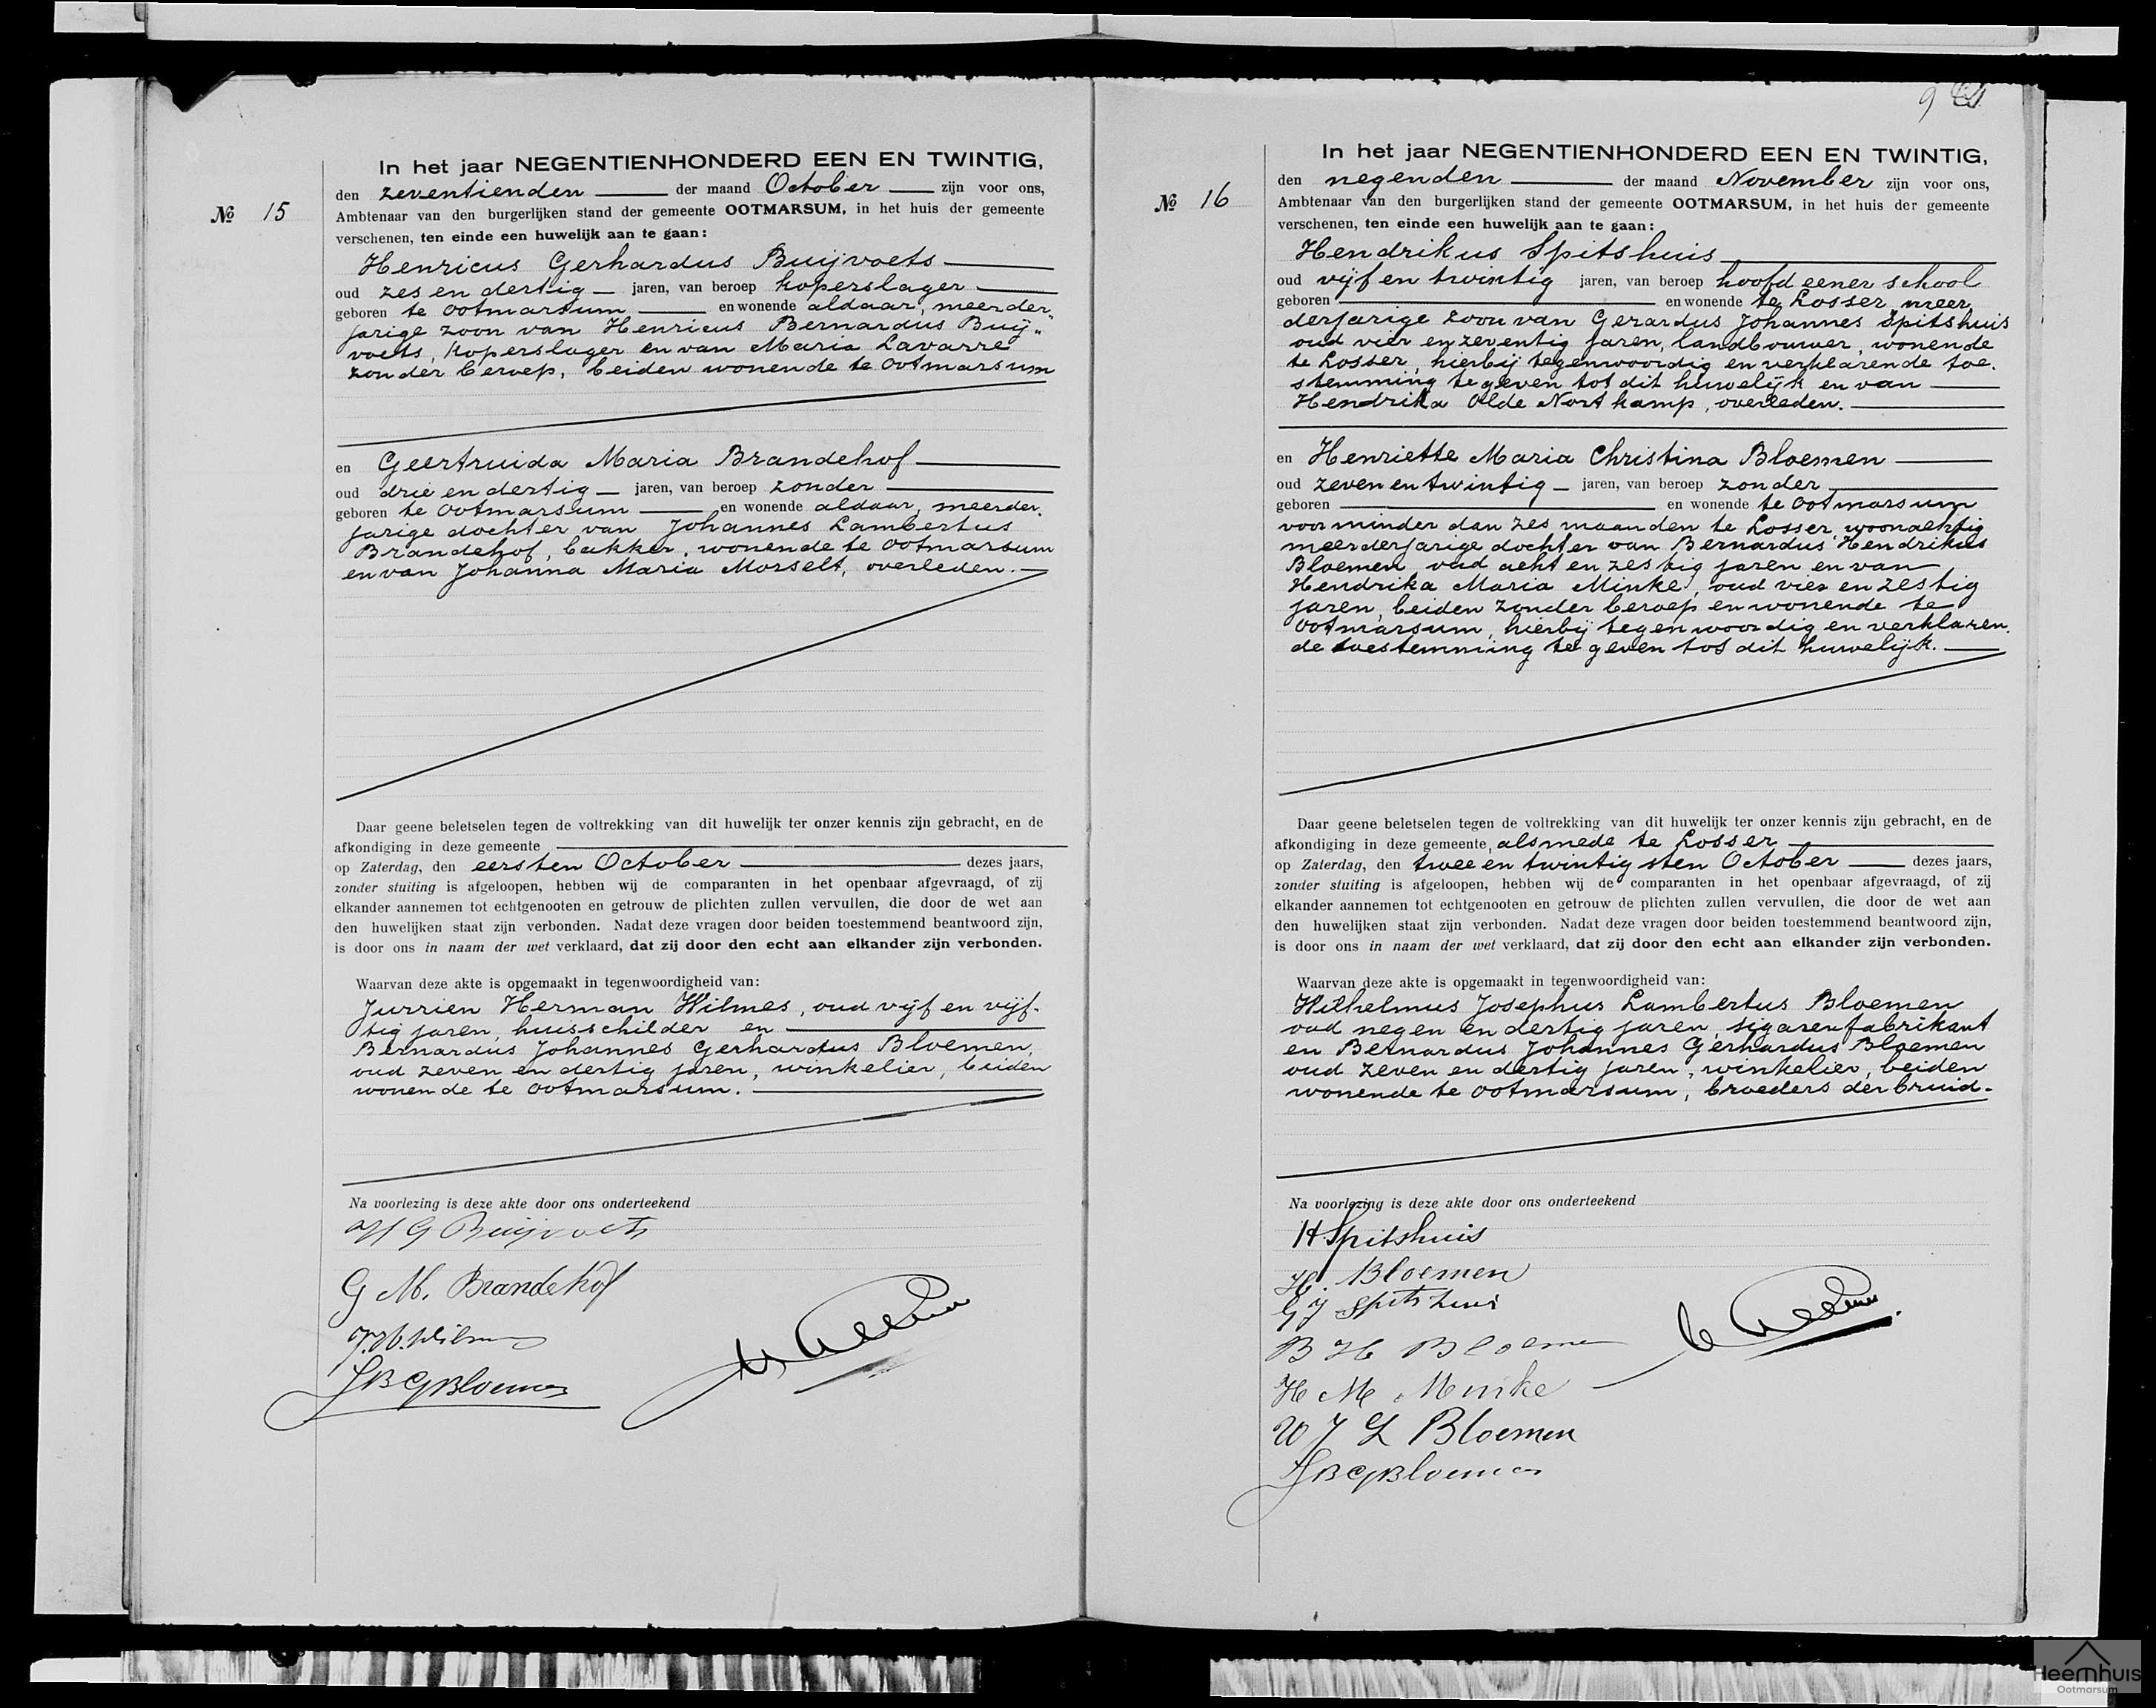 In het jaar NEGENTIENHONDERD EEN EN TWINTIG,
No 15
den zeventienden der maand October zijn voor ons,
Ambtenaar van den burgerlijken stand der gemeente OOTMARSUM, in het huis der gemeente
verschenen, ten einde een huwelijk aan te gaan:
Henricus Gerhardus Buijvoets
oud zes en dertig jaren, van beroep koperslager
geboren te Ootmarsum en wonende aldaar, meerder-
jarige zoon van Henricus Bernardus Buij-
voets, koperslager en van Maria Lavarre
zonder beroep, beiden wonende te Ootmarsum
en Geertruida Maria Brandehof
oud drie en dertig jaren, van beroep zonder
geboren te Ootmarsum en wonende aldaar, meerder-
jarige dochter van Johannes Lambertus
Brandehof, bakker, wonende te Ootmarsum
en van Johanna Maria Morselt, overleden.
Daar geene beletselen tegen de voltrekking van dit huwelijk ter onzer kennis zijn gebracht, en de
afkondiging in deze gemeente
op Zaterdag, den eersten October dezes jaars,
zonder stuiting is afgeloopen, hebben wij de comparanten in het openbaar afgevraagd, of zij
elkander aannemen tot echtgenooten en getrouw de plichten zullen vervullen, die door de wet aan
den huwelijken staat zijn verbonden. Nadat deze vragen door beiden toestemmend beantwoord zijn,
is door ons in naam der wet verklaard, dat zij door den echt aan elkander zijn verbonden.
Waarvan deze akte is opgemaakt in tegenwoordigheid van:
Jurrien Herman Wilmes, oud vijf en vijf-
tig jaren, huisschilder en
Bernardus Johannes Gerhardus Bloemen,
oud zeven en dertig jaren, winkelier, beiden
wonende te Ootmarsum.
Na voorlezing is deze akte door ons onderteekend
H G Buijvoets
G M. Brandehof
J.H. Wilmes
BJGBloemen
9
In het jaar NEGENTIENHONDERD EEN EN TWINTIG,
No 16
den negenden der maand November zijn voor ons,
Ambtenaar van den burgerlijken stand der gemeente OOTMARSUM, in het huis der gemeente
verschenen, ten einde een huwelijk aan te gaan:
Hendrikus Spitshuis
oud vijf en twintig jaren, van beroep hoofd eener school
geboren en wonende te Losser, meer
derjarige zoon van Gerardus Johannes Spitshuis
oud vier en zeventig jaren, landbouwer, wonende
te Losser, hierbij tegenwoordig en verklarende toe-
stemming te geven tot dit huwelijk en van
Hendrika Olde Nortkamp, overleden.
en Henriette Maria Christina Bloemen
oud zeven en twintig jaren, van beroep zonder
geboren en wonende te Ootmarsum
voor minder dan zes maanden te Losser woonachtig
meerderjarige dochter van Bernardus Hendrikus
Bloemen, oud acht en zestig jaren en van
Hendrika Maria Minke, oud vier en zestig
jaren, beiden zonder beroep en wonende te
Ootmarsum, hierbij tegenwoordig en verklaren-
de toestemming te geven tot dit huwelijk.
Daar geene beletselen tegen de voltrekking van dit huwelijk ter onzer kennis zijn gebracht, en de
afkondiging in deze gemeente, alsmede te Losser
op Zaterdag, den twee en twintigsten October dezes jaars,
zonder stuiting is afgeloopen, hebben wij de comparanten in het openbaar afgevraagd, of zij
elkander aannemen tot echtgenooten en getrouw de plichten zullen vervullen, die door de wet aan
den huwelijken staat zijn verbonden. Nadat deze vragen door beiden toestemmend beantwoord zijn,
is door ons in naam der wet verklaard, dat zij door den echt aan elkander zijn verbonden.
Waarvan deze akte is opgemaakt in tegenwoordigheid van:
Wilhelmus Josephus Lambertus Bloemen
oud negen en dertig jaren, sigarenfabrikant
en Bernardus Johannes Gerhardus Bloemen
oud zeven en dertig jaren, winkelier, beiden
wonende te Ootmarsum, broeders der bruid.
Na voorlezing is deze akte door ons onderteekend
H Spitshuis
H. Bloemen
G J Spitshuis
B H Bloemen
H M Minke
W J L Bloemen
BJGBloemen
Heemhuis
Ootmarsum